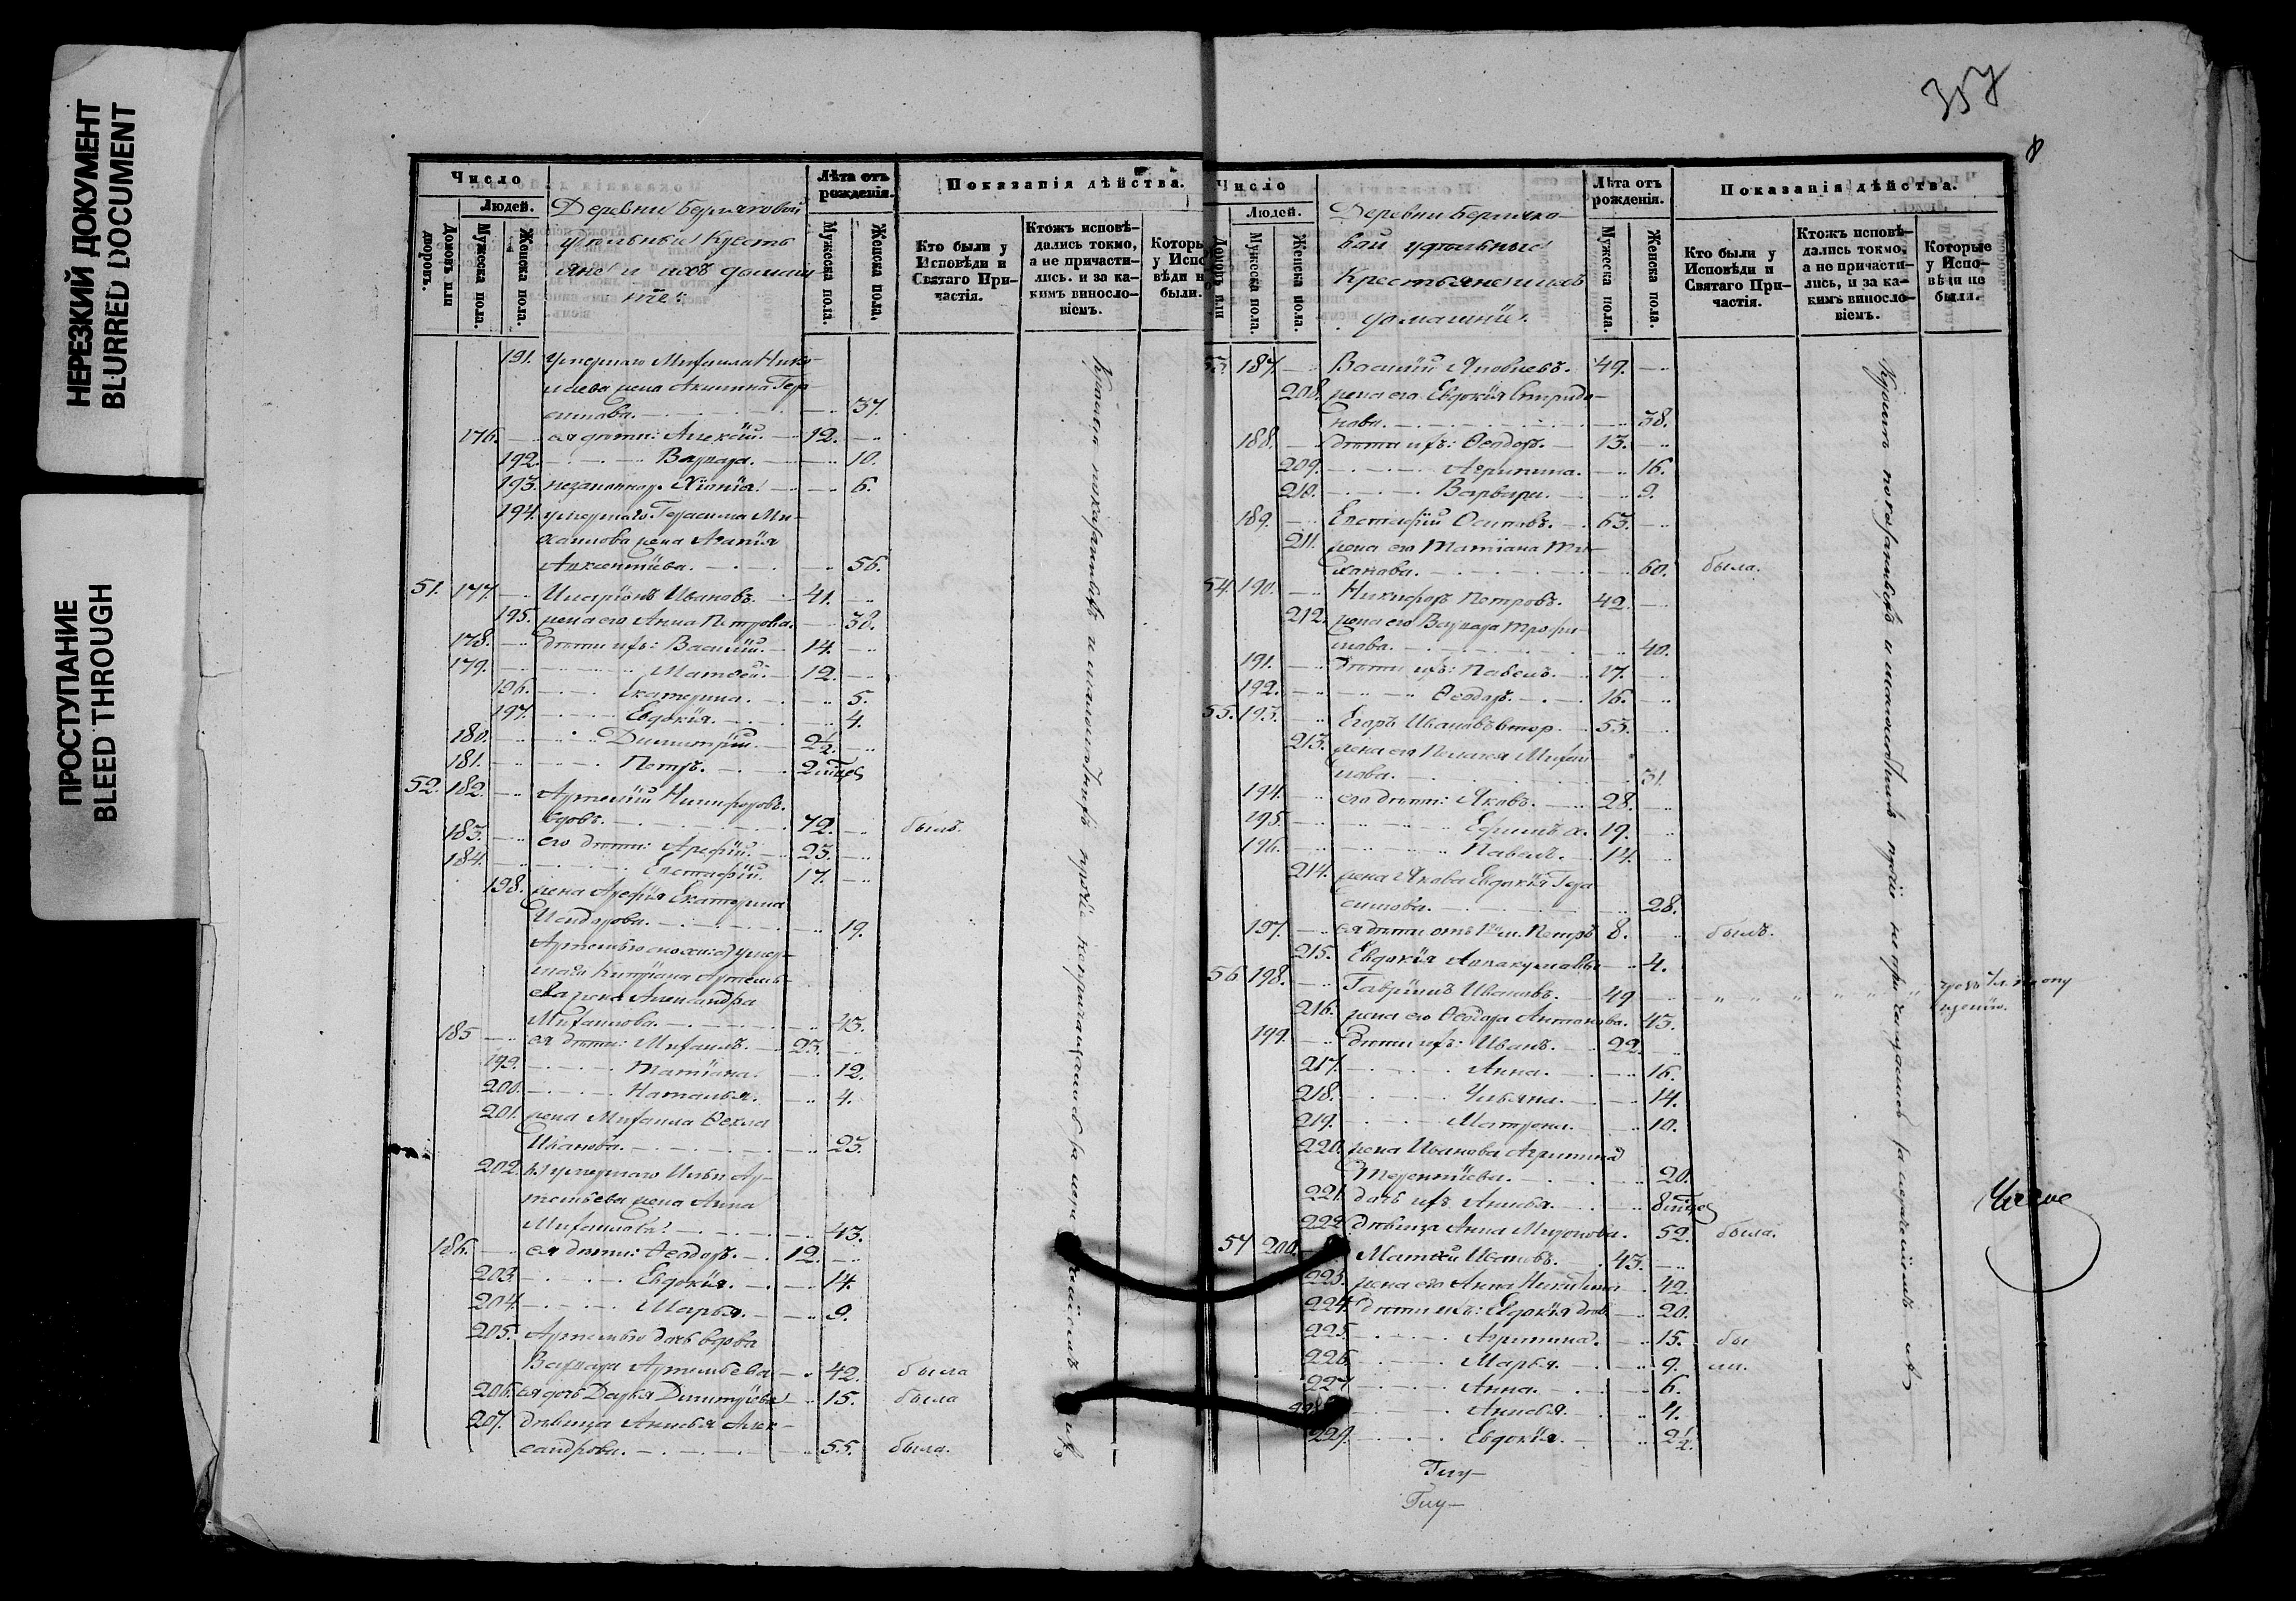 НЕРЕЗКИЙ ДОКУМЕНТ
BLURRED DOCUMENT
ПРОСТУПАНИЕ
BLEED THROUGH
357
8
Число
Людей.
Домовъ или дворовъ.
Мужеска пола.
Женска пола.
Деревни Берляковой
удѣльныи Кресть
яне и ихъ домаш
Лѣта отъ рожденія.
Мужеска пола.
Женска пола.
Показанія дѣйства.
Кто были у Исповѣди и Святаго Причастія.
Ктожъ исповѣдались токмо, а не причастились. и за какимъ винословіемъ.
Которы у Испо вѣди н были.
191. умершаго Михаила Нико-
лаева жена Акилина Гера-
симова. 37.
176. ея дѣти: Алексѣй. 12.
192. Варвара. 10.
193. незаконнор. Хіонія. 6.
194. умершаго Герасима Ми-
хаилова жена Агапія
Авксентіева. 56.
51. 177. Иларіонъ Ивановъ. 41.
195. жена его Анна Петрова. 38.
178. дѣти ихъ: Василій. 14.
179. Матѳей. 12.
196. Екатерина. 5.
197. Евдокія. 4.
180. Димитрій. 2½.
181. Петръ. 2 мѣс
52. 182. Артемій Никифоровъ
вдовъ. 72. былъ.
183. его дѣти: Арефій. 23.
184. Евстафій. 17.
198. жена Арефія Екатерина
Исидорова. 19.
Артемью сноха: а) умер-
шаго Кипріана Артемь-
ева жена Александра
Михаилова. 43.
185 ея дѣти: Михаилъ. 23.
199. Татіана. 12.
200. Наталья. 4.
201. жена Михаила Ѳекла
Иванова. 23.
202. б) умершаго Ильи Ар-
темьева жена Анна
Михаилова. 43.
186. ея дѣти: Ѳеодоръ. 12.
203. Евдокія. 14.
204. Марья. 9.
205. Артемью дочь вдова
Варвара Артемьева 42. была
206. ея дочь Дарья Димитріева 15. была
207. дѣвица Анисья Алек-
сандрова. 55. была.
Число
Людей.
Домовъ или
Мужеска пола.
Женска пола.
Деревни Берляко
вой удѣльные
Крестьяне и ихъ
домашніи.
Лѣта отъ рожденія.
Мужеска пола.
Женска пола.
Показанія дѣйства.
Кто были у Исповѣди и Святаго Причастія.
Ктожъ исповѣдались токмо, а не причастились, и за какимъ винословіемъ.
Которые у Исповѣди не были.
53. 187. Василій Яковлевъ. 49.
208. жена его Евдокія Спиридо-
нова. 38.
188. дѣти ихъ: Ѳеодоръ. 13.
209. Агрипина. 16.
210. Варвара. 9.
189. Евстафій Осиповъ. 63.
211. жена его Татіана Ти-
ханова. 60. была.
54. 190. Никифоръ Петровъ. 42.
212. жена его Варвара Трофи-
мова. 40.
191. дѣти ихъ: Павелъ. 17.
192. Ѳеодоръ. 16.
55. 193. Егоръ Ивановъ втор. 53.
213. жена его Пелагея Михаи
лова. 31.
194. его дѣти: Яковъ. 28.
195. Ефимъ х. 19.
196. Павелъ. 14.
214. жена Якова Евдокія Гера
симова. 28.
197. ея дѣти отъ 1го м. Петръ 8. былъ.
215. Евдокія Аввакумова 4.
56. 198. Гавріилъ Ивановъ. 49
216. жена его Ѳеодора Антонова. 43.
199. дѣти ихъ: Иванъ. 22.
217. Анна. 16.
218. Ульяна. 14.
219. Матрона. 10.
220. жена Иванова Агрипина
Терентіева. 20.
221. дочь ихъ Анисья. 8 мѣс
222 дѣвица Анна Миронова. 52. была.
57 200. Матѳей Ивановъ. 43.
223. жена его Анна Никитина 42.
224. дѣти ихъ: Евдокія дѣв. 20.
225. Агрипина. 15. бы
226. Марья. 9. ли.
227 Анна. 6.
228 Анисья. 4.
229. Евдокія. 2½.